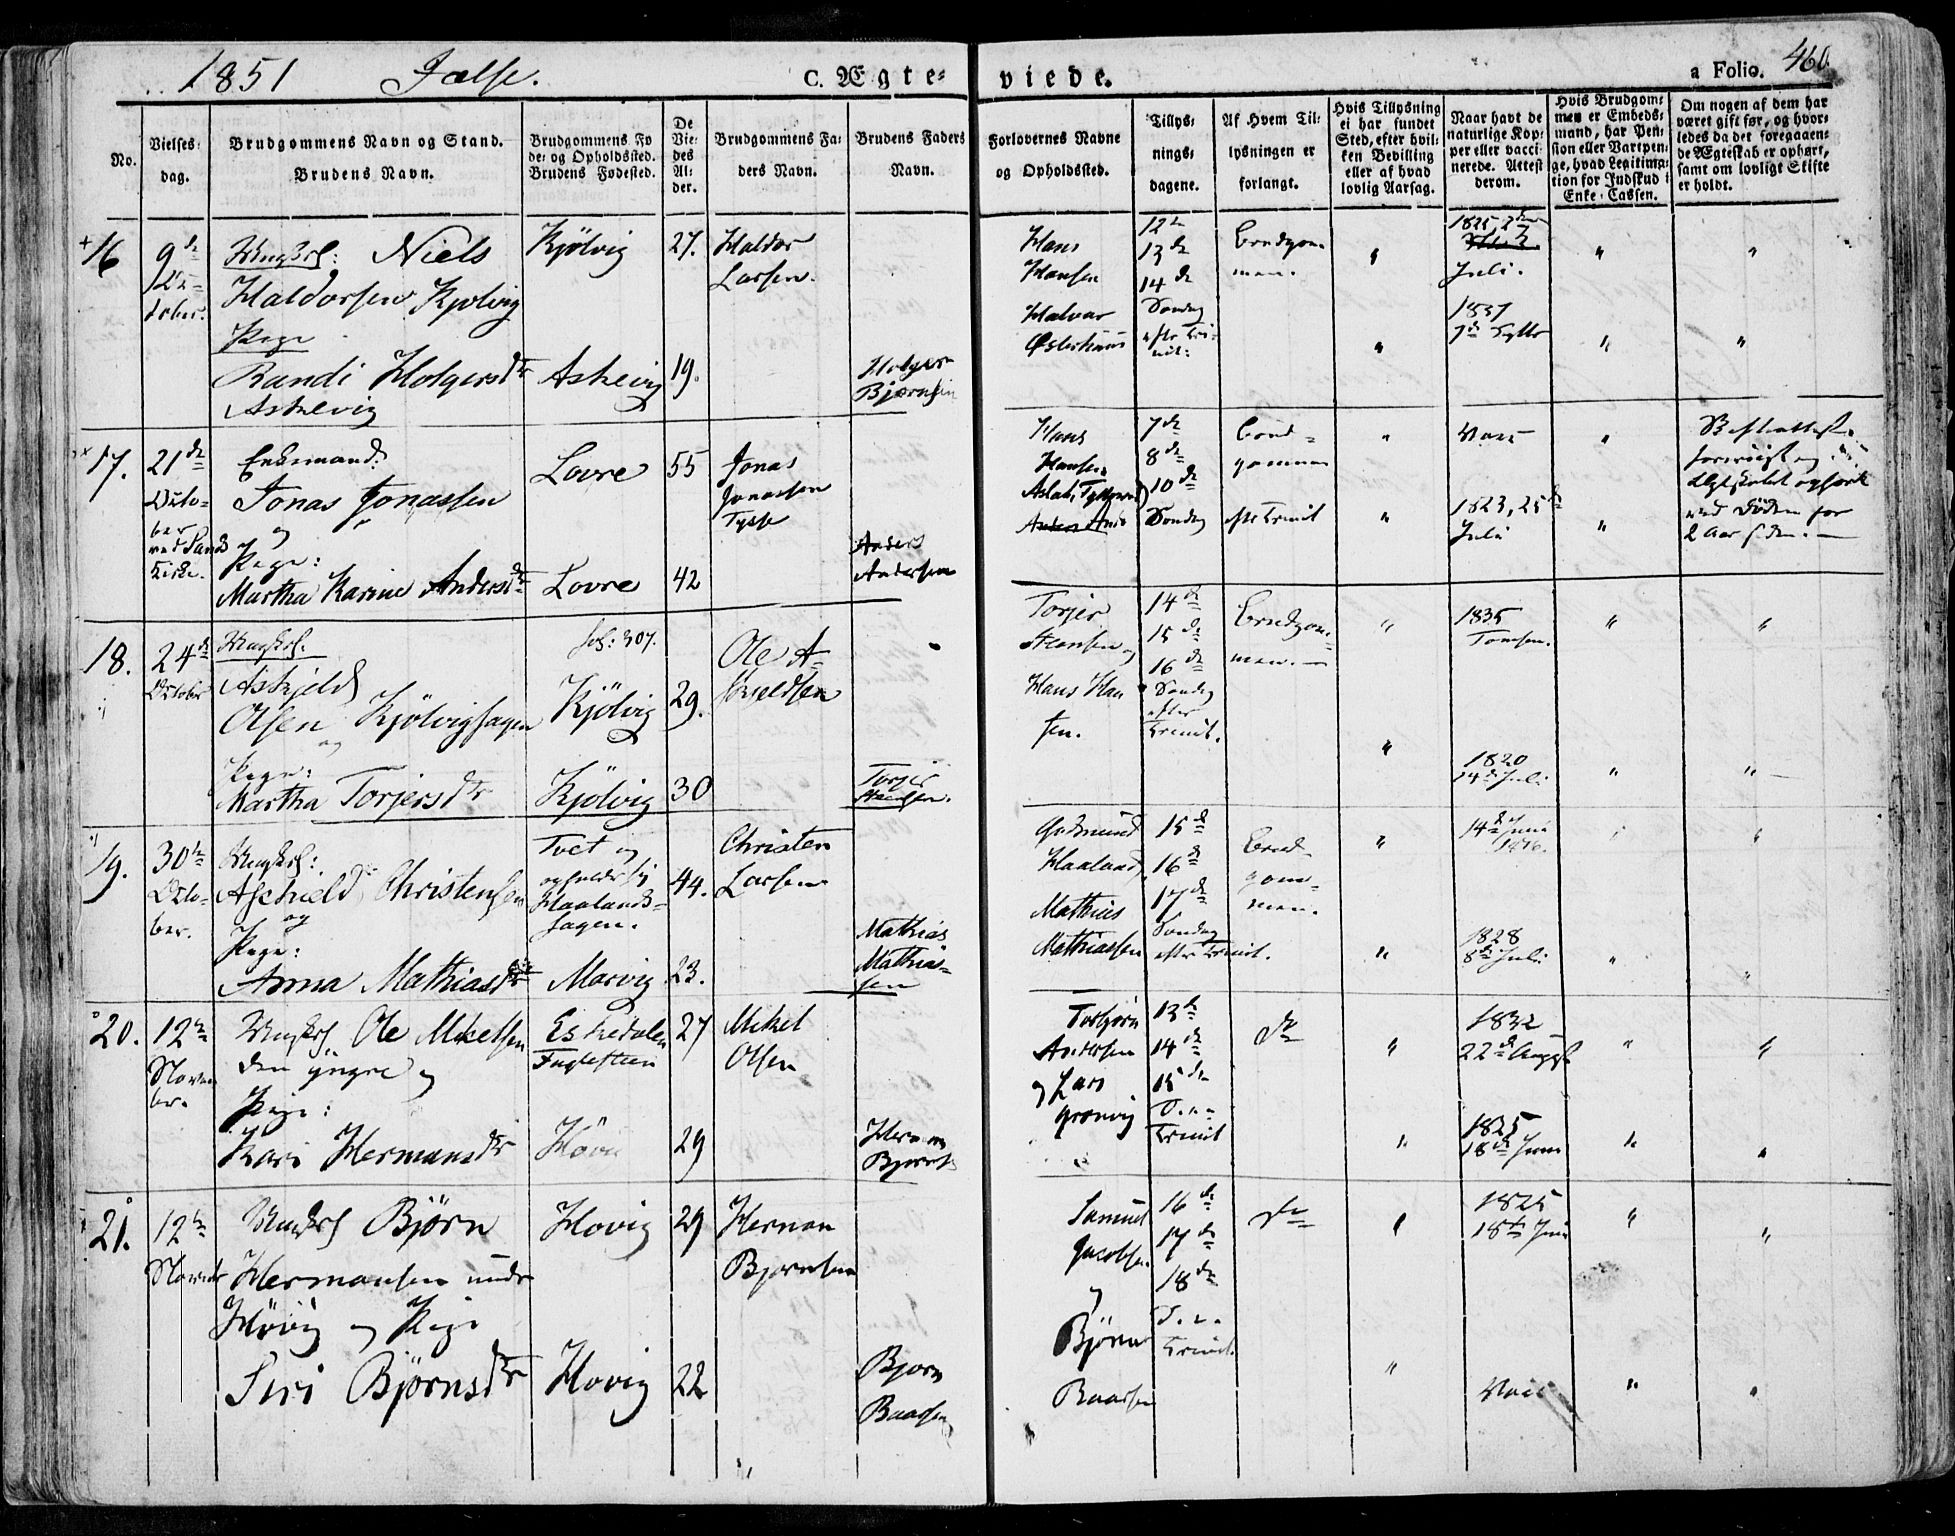 1851 Jælse.
C. Ægte-
viede.
a Folio. 460
No.
Vielses-
dag.
Brudgommens Navn og Stand.
Brudens Navn.
Brudgommens Fø
de- og Opholdssted.
Brudens Fødested.
De
Vie-
des
Al-
der.
Brudgommens Fa-
ders Navn.
Brudens Faders
Navn.
Forlovernes Navne
og Opholdssted.
Tillys-
nings-
dagene.
Af Hvem Til-
lysningen er
forlangt.
Hvis Tillysning
ei har fundet
Sted, efter hvil-
ken Bevilling
eller af hvad
lovlig Aarsag.
Naar havt de
naturlige Kop-
per eller vacci-
nerede. Attest
derom.
Hvis Brudgom-
men er Embeds-
mand, har Pen-
sion eller Vartpen-
ge, hvad Legitima-
tion for Indskud i
Enke-Cassen.
Om nogen af dem har
været gift før, og hvor-
ledes da det foregaaen-
de Ægteskab er ophørt,
samt om lovligt Skifte
er holdt.
16
9de
Octo-
ber.
Ungkrl: Niels
Haldorsen Kjølvig
Pige
Randi Holgersdtr
Askevig
Kjölvig
Askevig
27.
19.
Haldor
Larsen.
Holger
Bjørnsen
Hans
Hansen
Halvar
Østerhuus
12te
13de
14de
Søndag
efter Tri-
nit:
Brudgom-
men.
1825, 2den
Juli.
1837
" " "
17.
21de
Octo-
ber
ved Sands
Kirke.
Enkemand:
Jonas Jonassen
og
Pige:
Martha Karine Andersdtr
Lovre
Lovre
55
42
Jonas
Jonassen
Tysse
Anders
Andersen
Hans
Hansen
7de
8de
10de
Søndag
efter Trinit
Brud-
gommen
1823, 25de
Juli
ved Døden for
2 Aar siden.
18.
24de
October
Ungkrl.
Askjeld
Olsen Kjölvighagen
og
Pige:
Martha Torjersdtr
fol: 307.
Kjölvig
Kjölvig
29.
30
Ole A-
skieldsen
Torjer
Hansen.
Torjer
Hansen og
Hans Han
sen.
14de
15de
16de
Søndag
efter
Trinit.
Brudgom-
men.
1835
1820
14de Juli
19.
30te
Octo-
ber.
Ungkrl:
Aschield Christensen
og
Pige:
Anna Mathiasdtr
Tvet og
opholder sig
Haalands-
hagen.
Marvig
44.
23.
Christen
Larsen
Mathias
Mathia-
sen
Gudmund
Haaland,
Mathias
Mathiassen
15de
16de
17de
Søndag
efter Trinit.
Brud-
gom-
men.
14de Juni
1816.
1828
8de Juli
20.
12te
Novem-
ber.
Ungkrl Ole Mikelsen
den yngre og
Pige:
Kari Hermansdtr
Eskedalen
Fuglesteen
Hövi
27
29
Mikel
Olsen
Herman
Bjørns
Torbjørn
Andersen
og Lars
Grønvig
13de
14de
15de
S. e.
Trinit
do
1832
22de Augst
1825
18de Juni
21.
12te
Novembr
Ungkrl Björn
Hermansen
Hövig og Pige
Siri Björnsdtr
Hovig
Hovig
29
22
Herman
Bjørnsen
Bjorn
Baardsen
Samuel
Jacobsen
og
Bjørn
Baardsen
16de
17de
18de
S. e.
Trinit.
do
1825
18de Juni